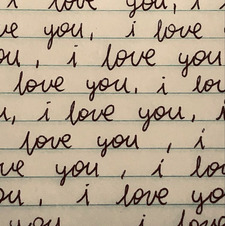 i love you, i
ve you, i love
ou, i love you
love you, i lov
u, i love you, i
love you , i
ve you , i lo
ou, i love yo
you i love